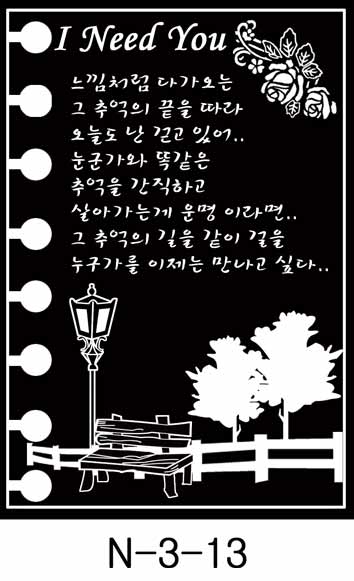 I Need You
느낌처럼 다가오는
그 추억의 끝을 따라
오늘도 난 걷고 있어..
눈군가와 똑같은
추억을 간직하고
살아가는게 운명 이라면..
그 추억의 길을 같이 걸을
누구가를 이제는 만나고 싶다..
N-3-13